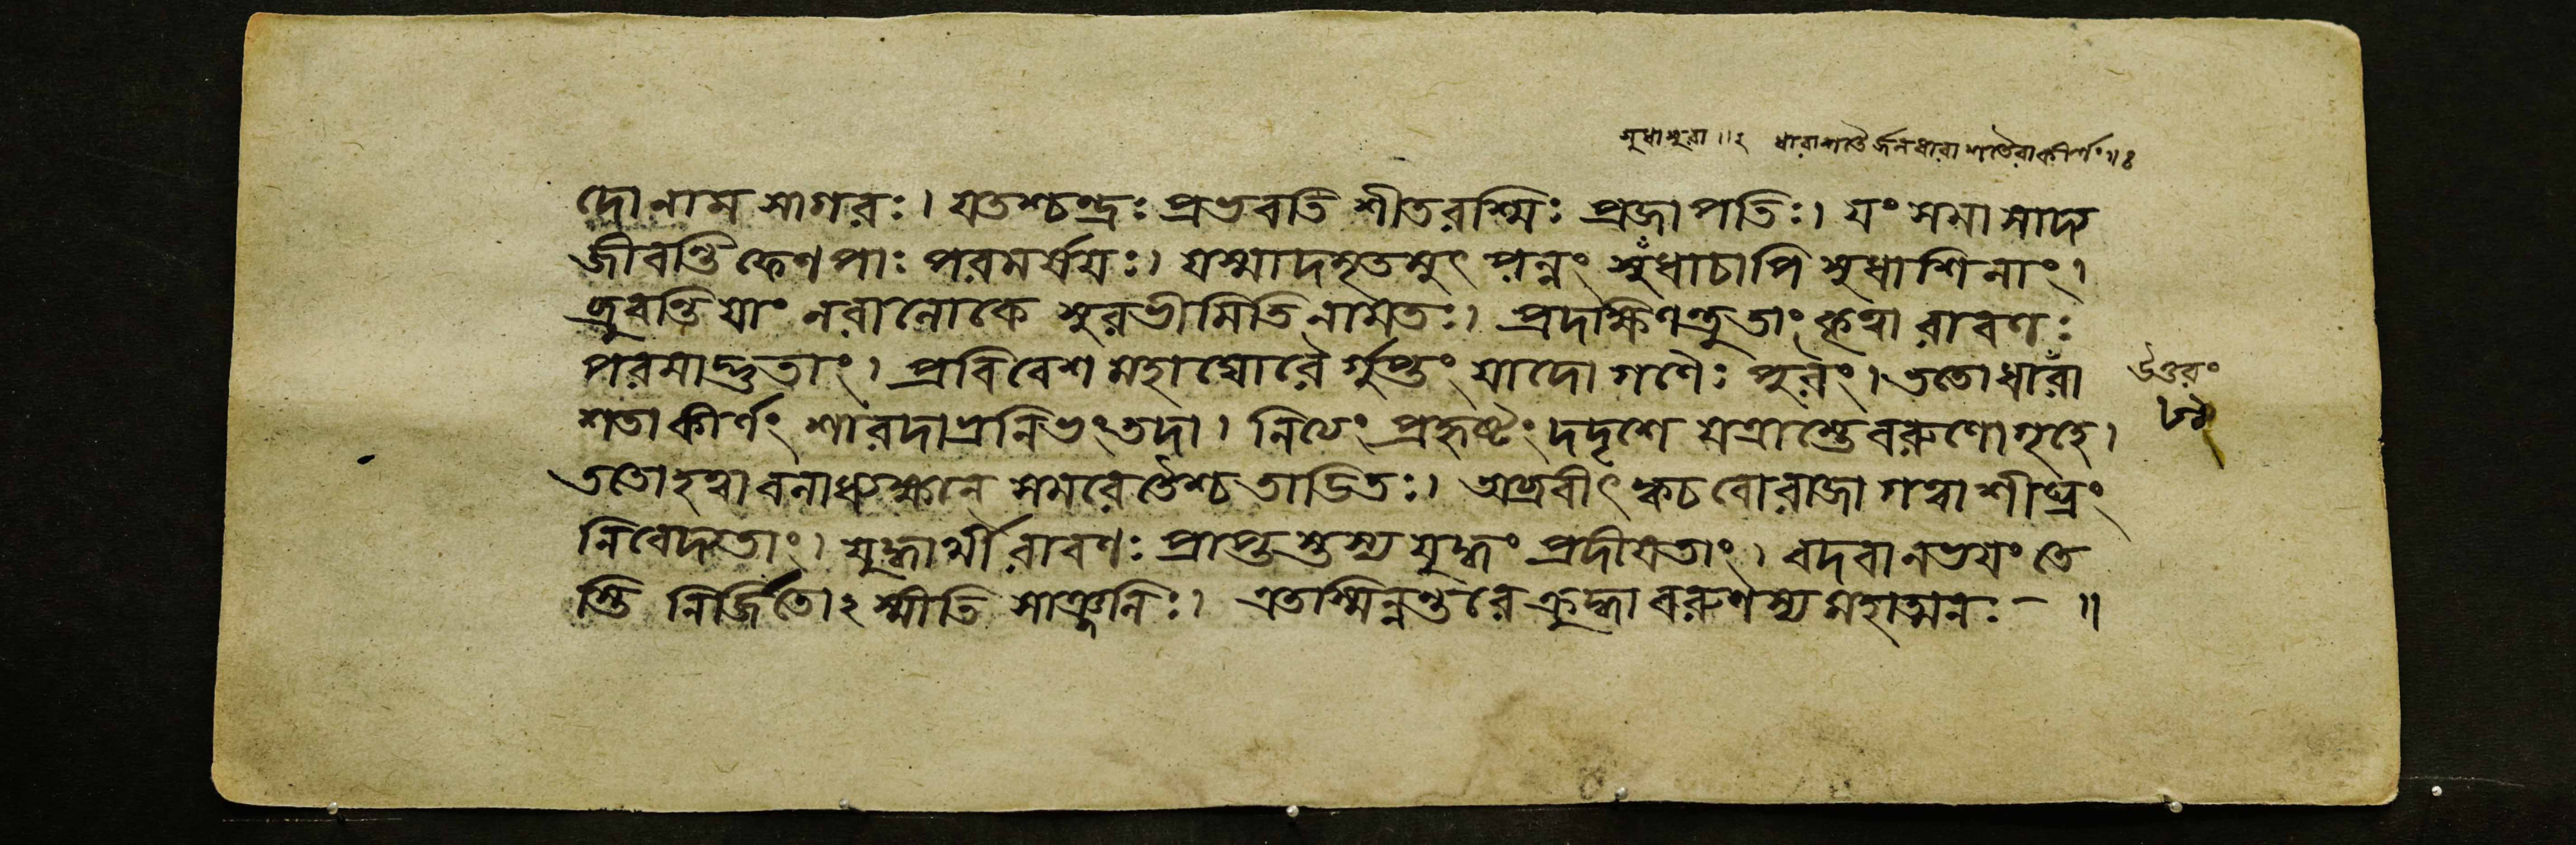 সুধাসুরা ॥ ২ ধারাশতৈর্জলধারাশতৈরাকীর্ণং ॥ ৪
দোনাম সাগরঃ। যতশ্চন্দ্রঃ প্রভবতি শীতরশ্মিঃ প্রজাপতিঃ। যং সমাসাদ্য
জীবন্তি ফেণপাঃ পরমর্ষয়ঃ। যস্মাদমৃতমুৎপন্নং সুধাচাপি সুধাশিনাং।
ব্রুবন্তি যাং নরালোকে সুরভীমিতিনামতঃ। প্রদক্ষিণন্তু তাং কৃত্বা রাবণঃ
পরমাদ্ভুতাং। প্রবিবেশ মহাঘোরৈর্গুপ্তং যাদোগণৈঃ পুরং। ততোধারা
শতাকীর্ণং শারদাভ্রনিভং তদা। নিত্যং প্রহৃষ্টং দদৃশে যত্রাস্তে বরুণোগৃহে।
ততোহত্বা বলাধ্যক্ষান্ সমরে তৈশ্চ তাডিতঃ। অব্রবীৎ ক্বচ বোরাজা গত্বা শীঘ্রং
নিবেদ্যতাং। যুদ্ধার্থী রাবণঃ প্রাপ্তস্তস্য যুদ্ধং প্রদীয়তাং। বদ বা নভয়ং তে
স্তি নির্জিতোঽস্মীতি সাঞ্জলিঃ। এতস্মিন্নন্তরে ক্রুদ্ধা বরুণস্য মহাত্মনঃ ॥
উত্তরং